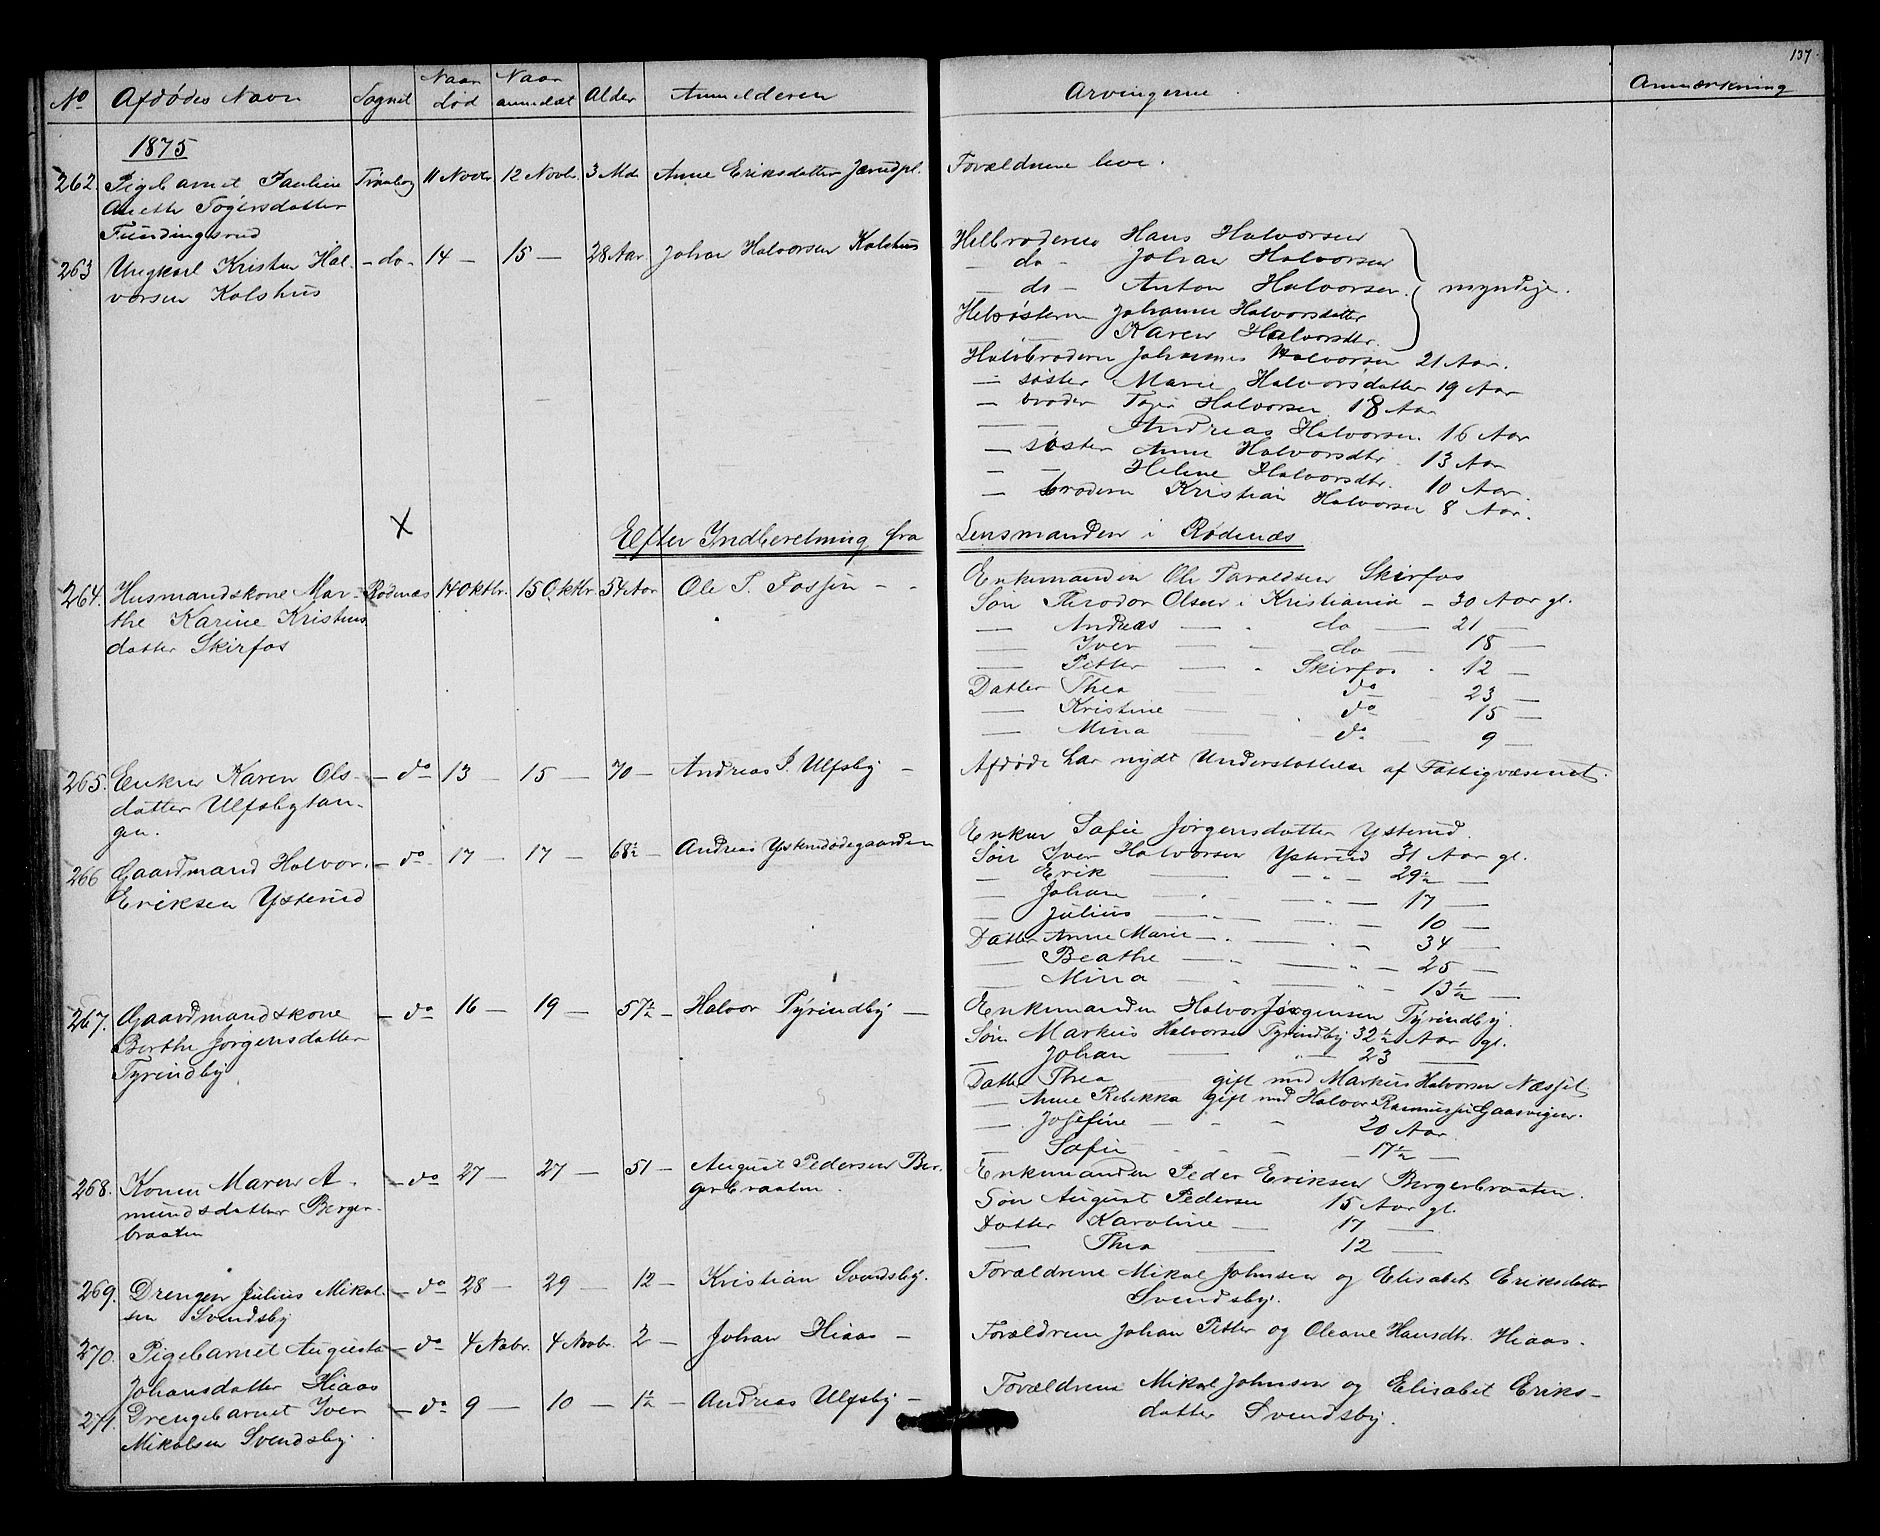 137.
No Afdødes Navn Sognet Naar død Naar anmeldt Alder Anmelderen Arvingerne Anmærkning
1875
262 Pigebarnet Pauline Trøgstad 11 Novbr. 12 Novbr. 3 Md. Anne Eriksdatter Forældrene leve.
Anette Togersdatter
Fundingsrud
263 Ungkarl Kristen Hal- - do - 14 - 15 - 28 Aar. Johan Halvorsen Kolshus Helbroderen Hans Halvorsen
vorsen Kolshus
- do - Johan Halvorsen
- do - Anton Halvorsen. myndige.
Helsøsteren Johanne Halvorsdatter
Karen Halvorsdtr.
Halvbroderen Johannes Halvorsen 21 Aar.
- søster Marie Halvorsdatter 19 Aar
- broder Toger Halvorsen 18 Aar
- - Andreas Halvorsen. 16 Aar
- søster Anne Halvorsdtr. 13 Aar
- - Heline Halvorsdtr. 10 Aar.
- broderen Kristian Halvorsen 8 Aar.
X
Efter Indberetning fra Lensmanden i Rødenæs
264. Husmandskone Mar- Rødenæs 14 Oktbr. 15 Oktbr 54 Aar Ole T. Fossen - - Enkemanden Ole Taraldsen Skirfos
the Karine Kristens
datter Skirfos
Søn Theodor Olsen i Kristiania - 30 Aar gl.
- Andreas - " do - 21 -
- Iver - - do - 18 -
- Petter - " Skirfos . 12 -
Datter Thea - - do - 23 -
- Kristine - - do - 15 -
- Mina - do - 9 -
265. Enken Karen Ols- - do 13 - 15 - 70 - Andreas I. Ulfsby - Afdøde har nydt Understøttelse af Fattigvæsenet.
datter Ulfsbytan-
gen.
266 Gaardmand Halvor - do - 17 - 17 - 68½ - Andreas Ysterudødegaarden Enken Sofie Jørgensdatter Ysterud.
Eriksen Ysterud
Søn Iver Halvorsen Ysterud 31 Aar gl.
- Erik - " - 29½ -
- Johan - " - 17 -
- Julius - " - 10 -
Datter Anne Marie - " - 34 -
- Beathe - " - 25 -
- Mina - " - 13½ -
267. Gaardmandskone - do 16 - 19 - 57½ - Halvor Tyrindby - Enkemanden Halvor Jørgensen Tyrindby.
Berthe Jørgensdatter
Tyrindby
Søn Markus Halvorsen Tyrindby 32½ Aar gl.
- Johan - " - 23 -
Datter Thea - gift med Markus Halvorsen Næsset
- Anne Rebekka gift med Halvor Rasmussen Gaasvigen.
- Josefine - - - 20 Aar.
- Sofie - - - 17½ -
268. Konen Maren A- - do 27 - 27 - 51 - August Pedersen Ber- Enkemanden Peder Eriksen Bergerbraaten.
mundsdatter Berger-
braaten
gerbraaten.
Søn August Pedersen 15 Aar gl.
Datter Karoline - 17 -
- Thea - 12 -
269. Drengen Julius Mikal- - do 28 - 29 - 12 - Kristian Svendsby. Forældrene Mikal Johnsen og Elisabet Eriksdatter
sen Svendsby
Svendsby.
270. Pigebarnet Augusta - do 4 Nobr. 4 Novbr. 2 - Johan Hiaas - Forældrene Johan Petter og Oleane Hansdtr. Hiaas.
Johansdatter Hiaas
271. Drengebarnet Iver - do 9 - 10 - 1½ - Andreas Ulfsby - Forældrene Mikal Johnsen og Elisabet Eriks-
Mikalsen Svendsby.
datter Svendsby.